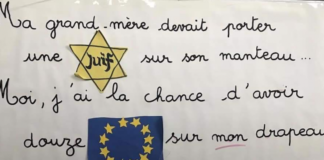 Ma grand-mère devait porter
une Juif sur son manteau...
Moi, j'ai la chance d'avoir
douze sur mon drapeau